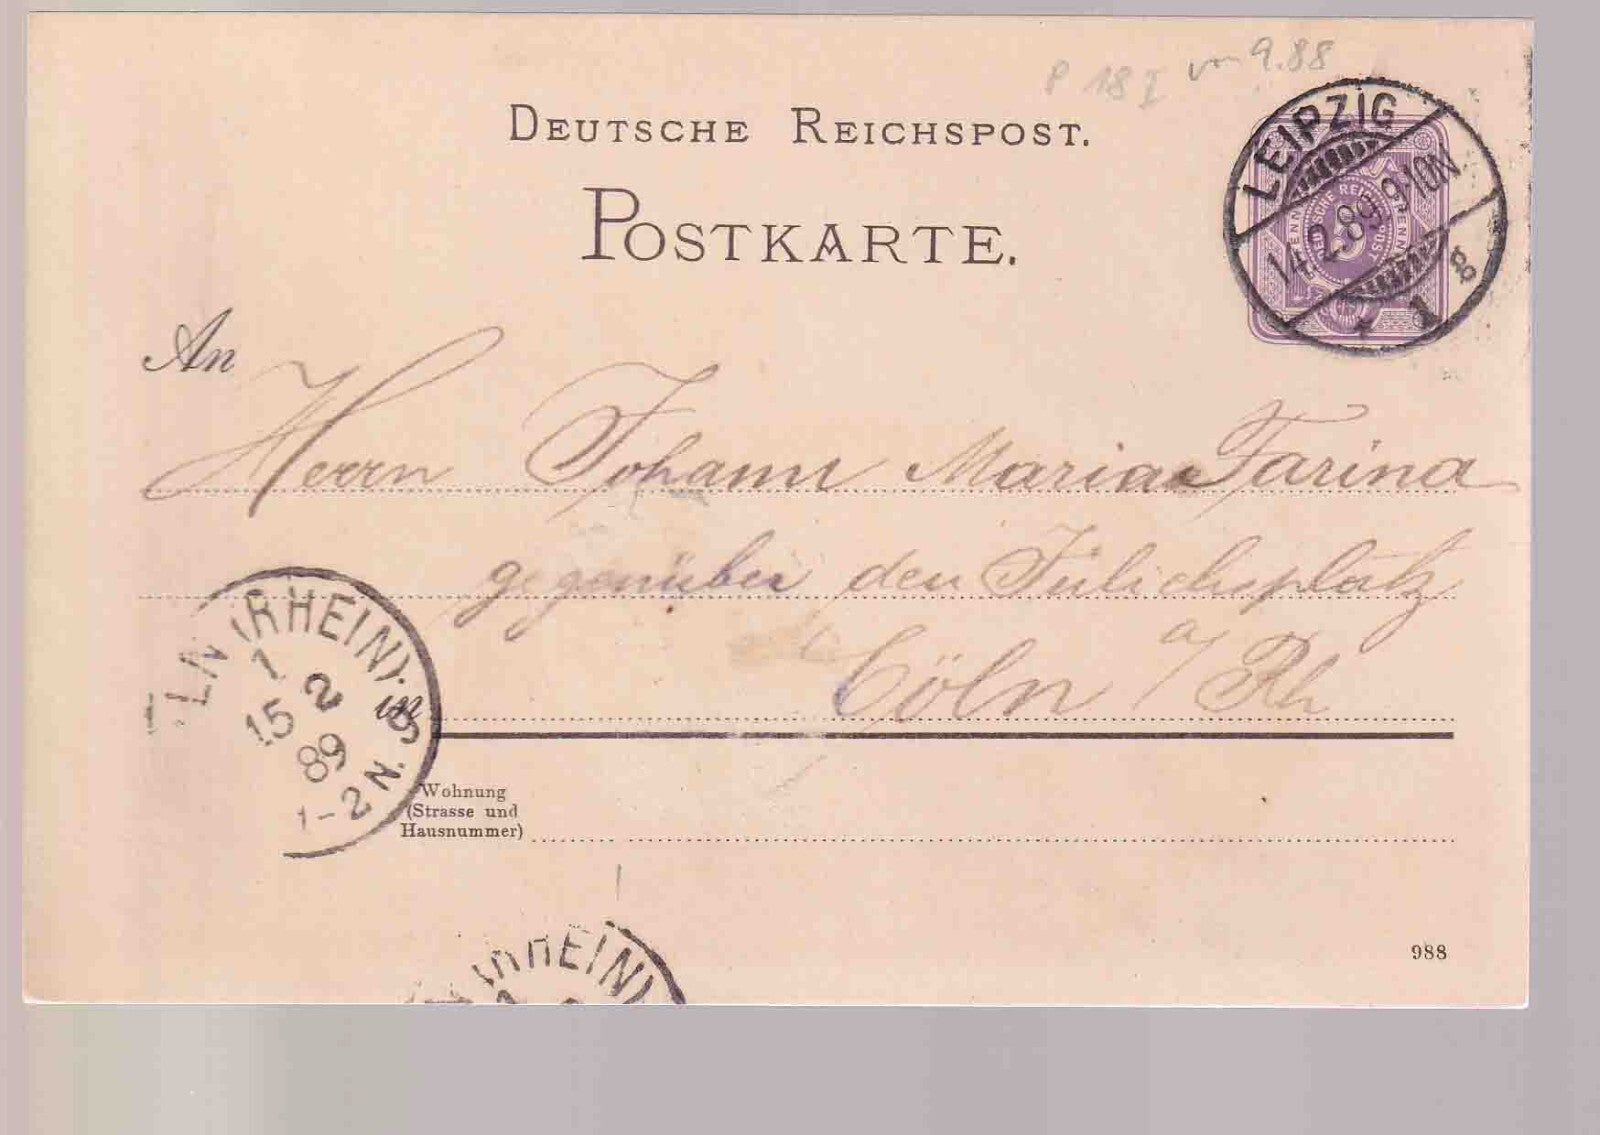 P 18 I von 9.88
DEUTSCHE REICHSPOST.
POSTKARTE.
LEIPZIG
14.2.89.9-10N
* 1 8
PFENNIG DEUTSCHE REICHSPOST PFENNIG
5
An
Herrn Johann Maria Farina
gegenüber den Jülichsplatz
Cöln a/Rh
in
LN (RHEIN).
1
15 2
89
1-2N.
Wohnung
(Strasse und
Hausnummer)
(RHEIN)
988